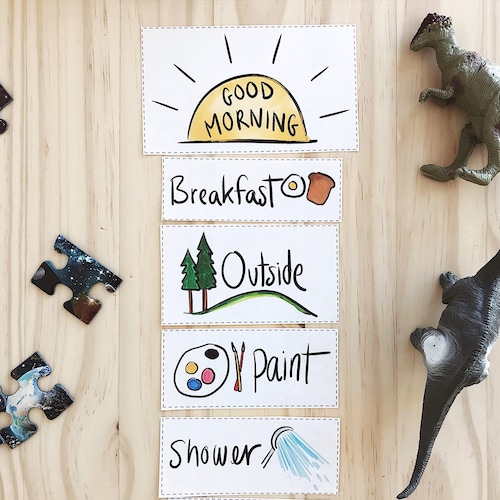 GOOD
MORNING
Breakfast
Outside
paint
shower